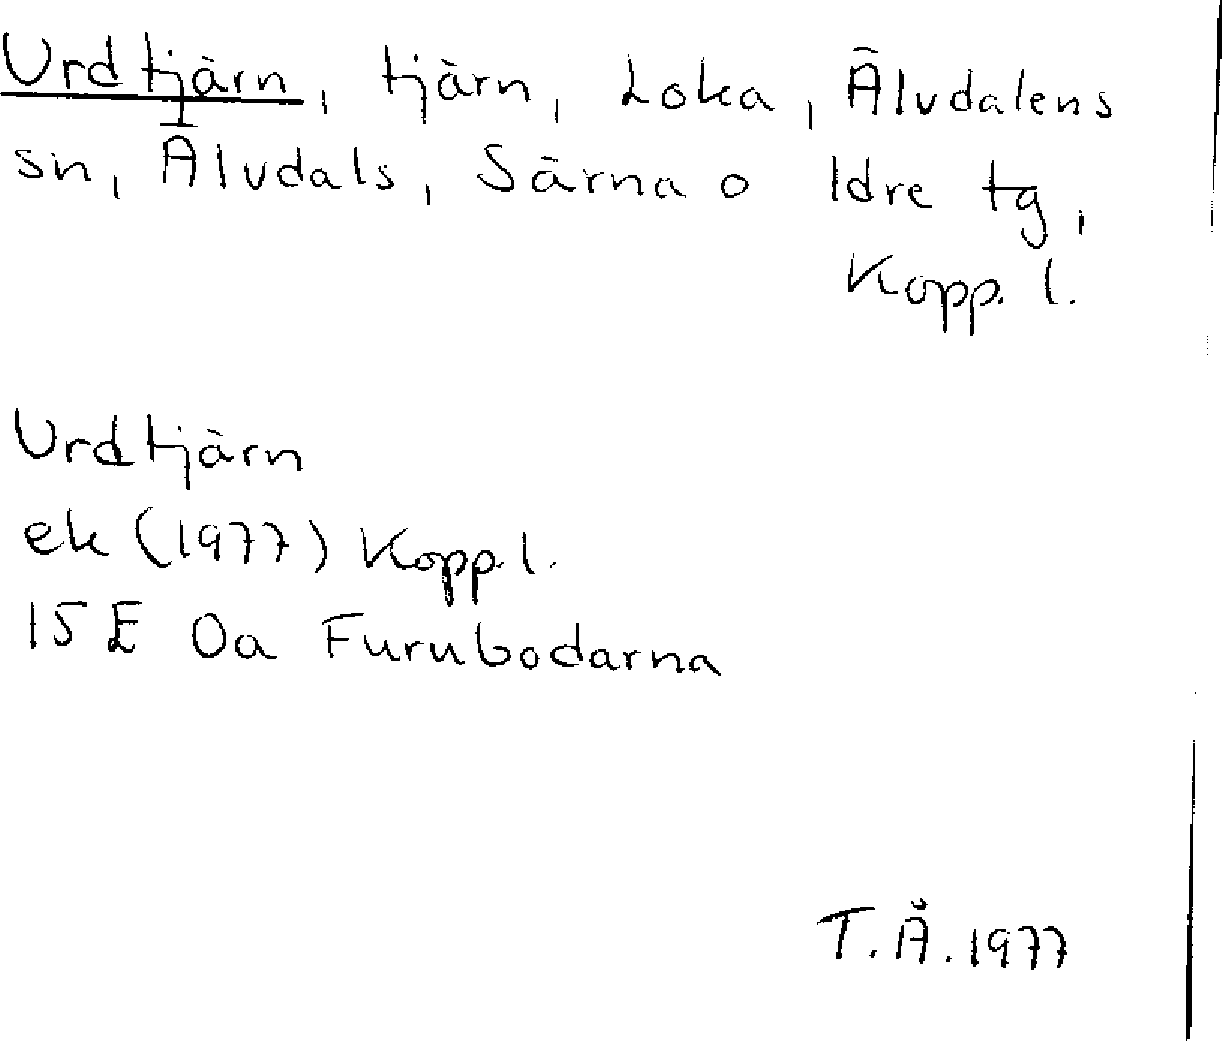 Urdtjärn, tjärn, Loka, Älvdalens
sn, Älvdals, Särna o Idre tg,
Kopp. l.
Urdtjärn
ek (1977) Kopp. l.
15 E 0a Furubodarna
T.Å. 1977